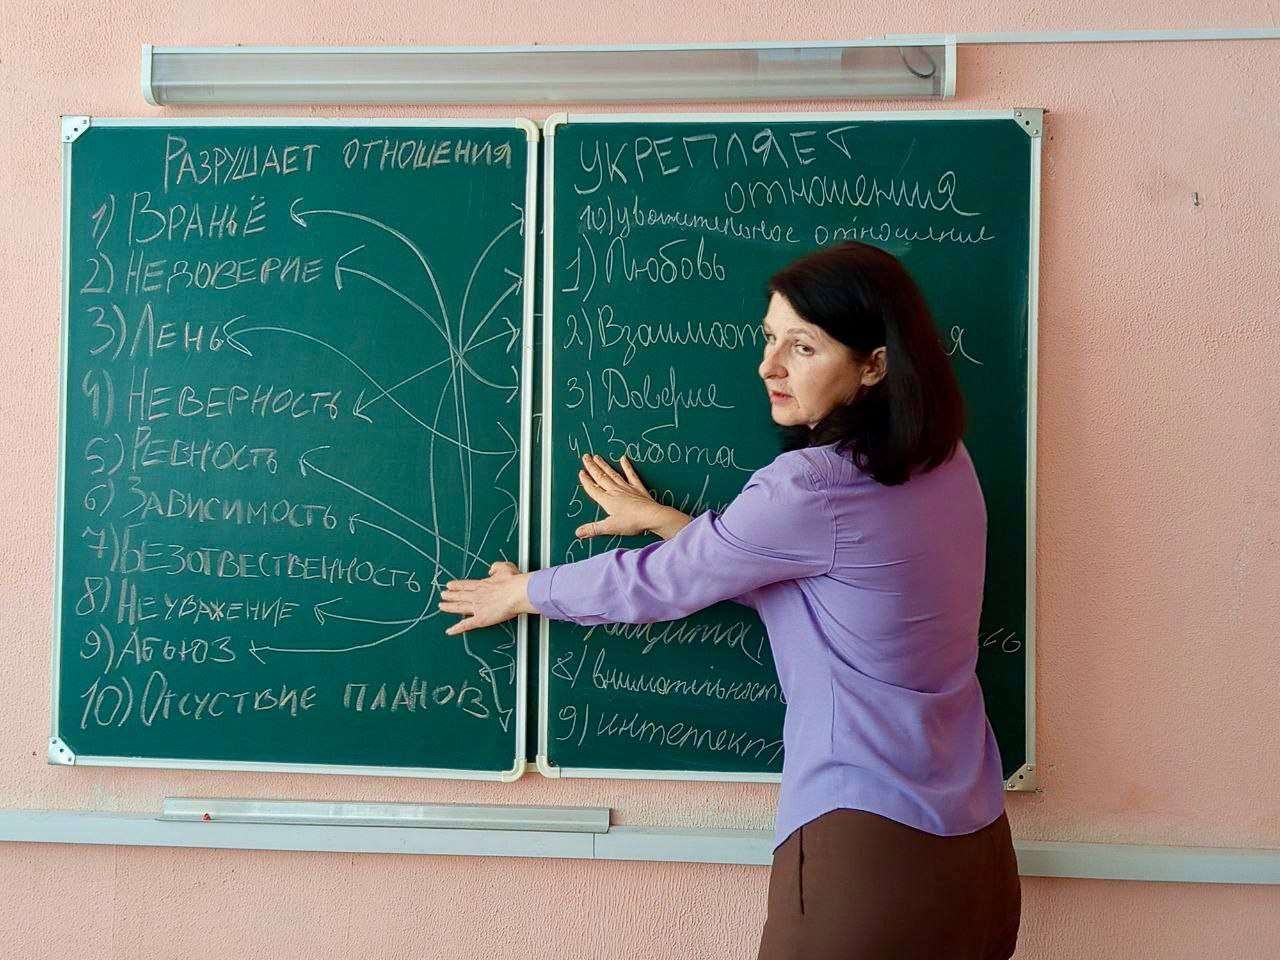 РАЗРУШАЕТ ОТНОШЕНИЯ
1) ВРАНЬЁ
2) НЕДОВЕРИЕ
3) ЛЕНЬ
4) НЕВЕРНОСТЬ
5) РЕВНОСТЬ
6) ЗАВИСИМОСТЬ
7) БЕЗОТВЕСТВЕННОСТЬ
8) НЕУВАЖЕНИЕ
9) АБЬЮЗ
10) ОТСУСТВИЕ ПЛАНОВ
УКРЕПЛЯЕТ
отношения
10) уважительное отношение
1) Любовь
2)
3) Доверие
4) Забота
5)
6)
защита
8) внимательность
9) интеллект